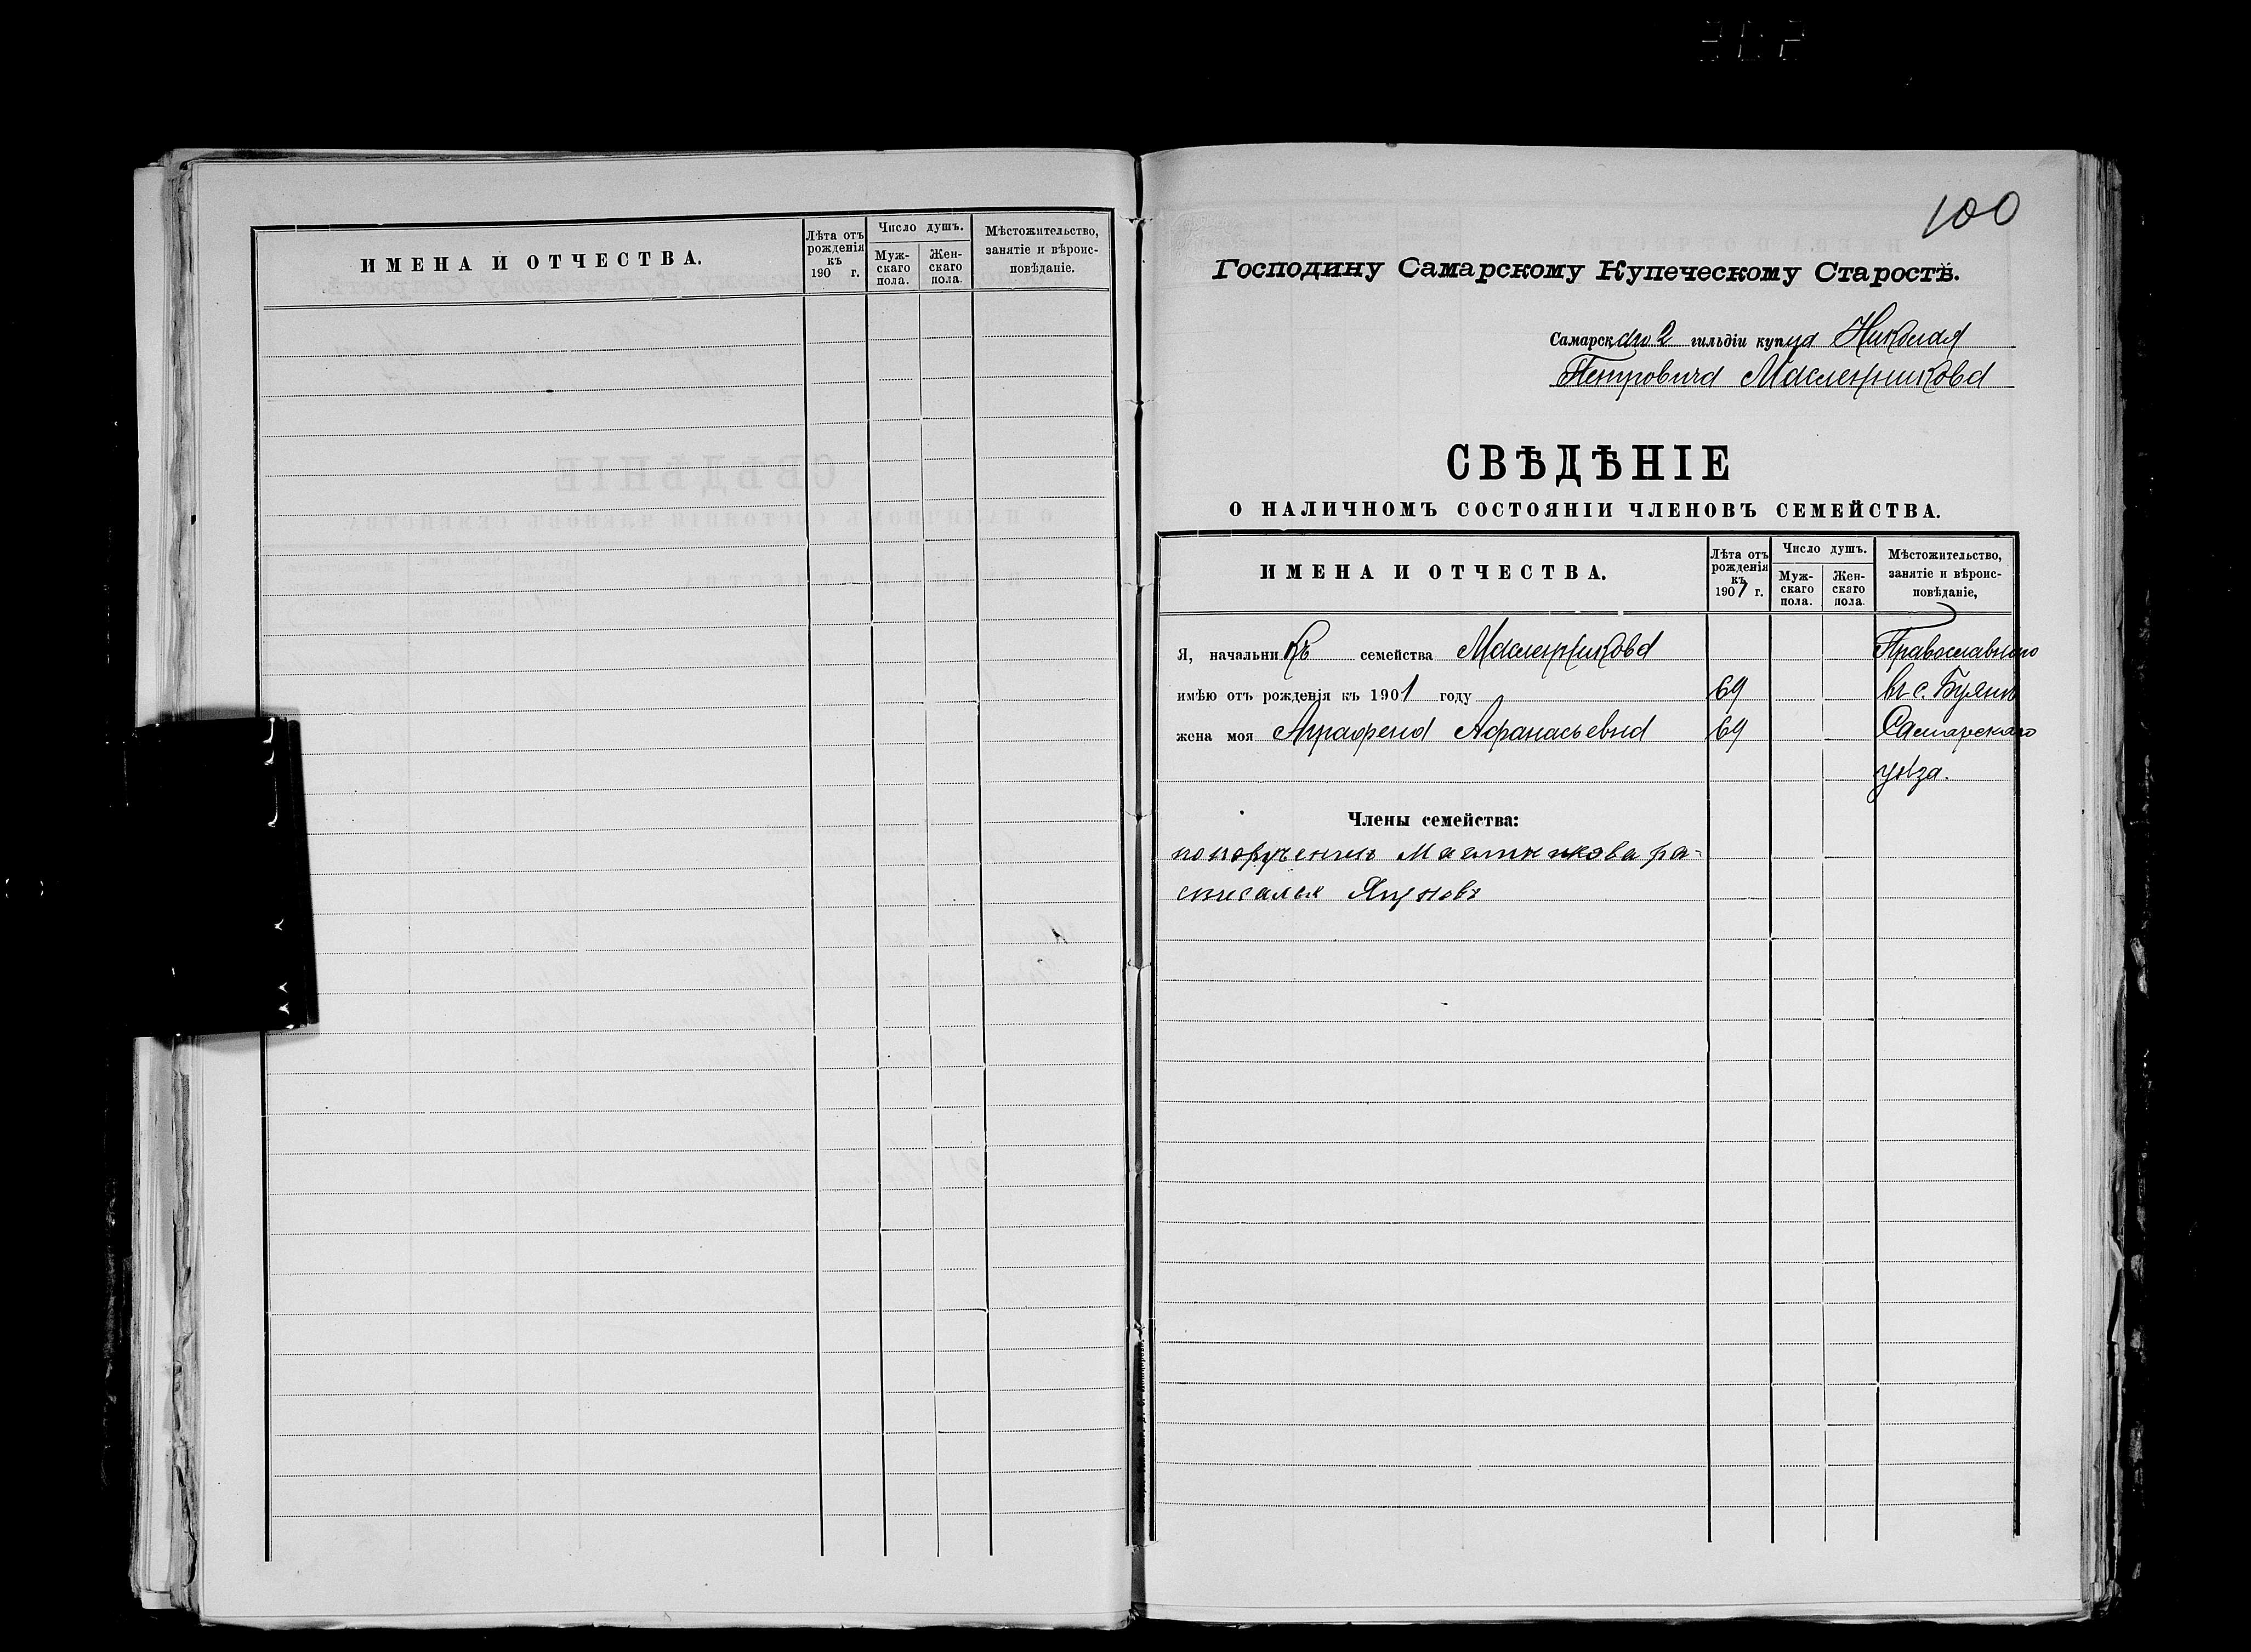 ИМЕНА И ОТЧЕСТВА.
Лѣта отъ рожденія къ 190 г.
Число душъ.
Мужскаго пола.
Женскаго пола.
Мѣстожительство, занятіе и вѣроисповѣданіе.
100
Господину Самарскому Купеческому Старостѣ.
Самарскаго 2 гильдіи купца Николая
Петровича Масленникова
СВѢДѢНІЕ
О НАЛИЧНОМЪ СОСТОЯНІИ ЧЛЕНОВЪ СЕМЕЙСТВА.
ИМЕНА И ОТЧЕСТВА.
Лѣта отъ рожденія къ 1901 г.
Число душъ.
Мужскаго пола.
Женскаго пола.
Мѣстожительство, занятіе и вѣроисповѣданіе,
Я, начальникъ семейства Масленникова Православного
имѣю отъ рожденія къ 1901 году 69 въ с. Буянъ
жена моя Аграфена Афанасьевна 69 Самарскаго
уѣзда.
Члены семейства:
по поручению ра-
списалься